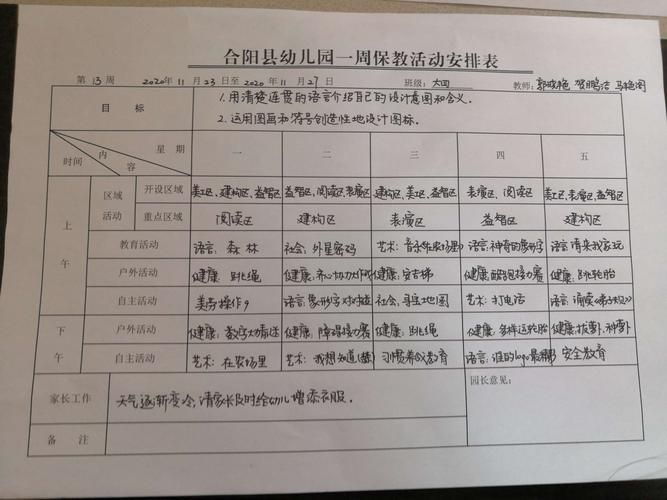 合阳县幼儿园一周保教活动安排表
第 13 周 2020年 11月 23日至 2020年 11月 27日 班级: 大四 教师:
目 标
1. 用清楚连贯的语言介绍自己的设计意图和含义。
2. 运用图画和符号创造性地设计图标。
星 期 内 容 时间 一 二 三 四 五
上 午
区域 活动
开设区域 美工区、建构区、益智区 益智区、阅读区、表演区 建构区、美工区、益智区 表演区、阅读区 美工区、表演区、益智区
重点区域 阅读区 建构区 表演区 益智区 建构区
教育活动 语言: 森林 社会: 外星密码 艺术: 语言: 神奇的象形字 语言: 请来我家玩
户外活动 健康: 跳绳 健康: 齐心协力 健康: 健康: 接力赛 健康: 跳轮胎
自主活动 美劳操作9 语言: 象形字对对碰 社会: 寻宝地图 艺术: 打电话 语言: 诵读《弟子规》
下 午
户外活动 健康: 数字大 健康: 障碍接力赛 健康: 跳绳 健康: 多样运轮胎 健康: 拔萝卜、种萝卜
自主活动 艺术: 在农场里 艺术: 我想知道 习惯养成教育 语言: 谁的logo最棒 安全教育
家长工作 天气逐渐变冷,请家长及时给幼儿增添衣服。
园长意见:
备 注